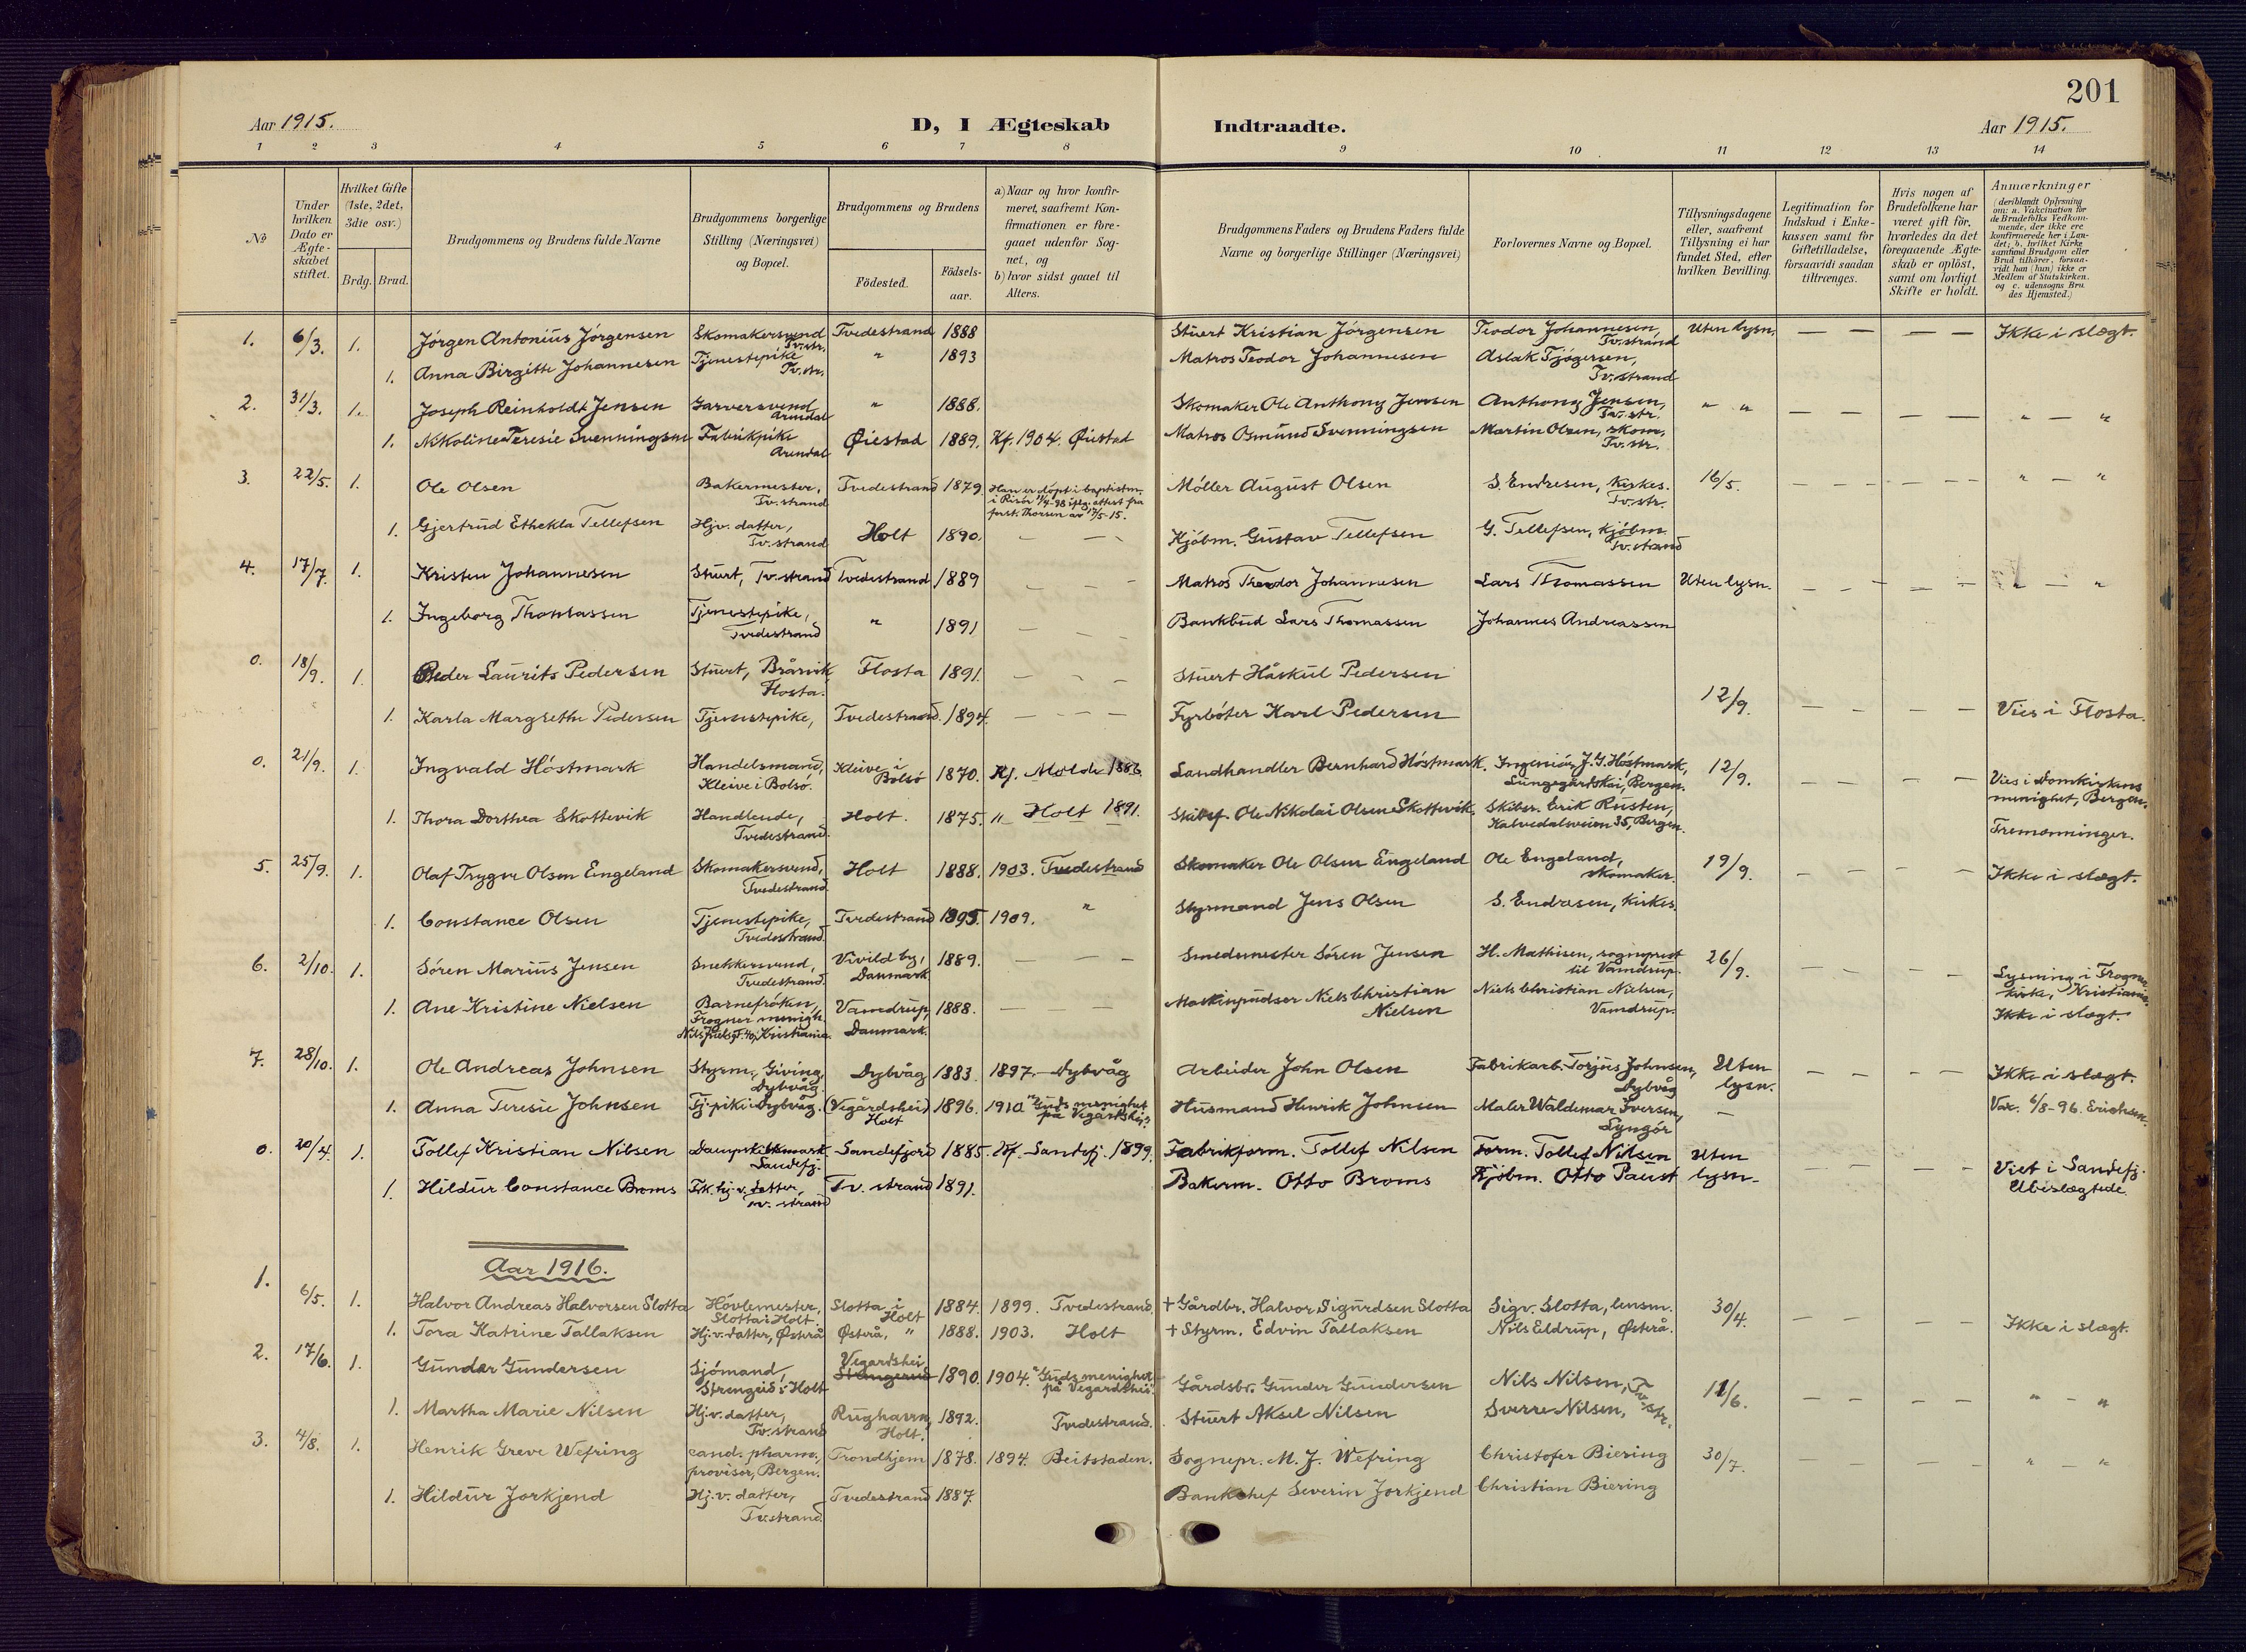 201
Aar 1915.
D, I Ægteskab Indtraadte.
Aar 1915.
1 2 3 4 5 6 7 8 9 10 11 12 13 14
No
Under hvilken Dato er Ægteskabet stiftet.
Hvilket Gifte (1ste, 2det, 3die osv.)
Brdg. Brud.
Brudgommens og Brudens fulde Navne
Brudgommens borgerlige Stilling (Næringsvei) og Bopæl.
Brudgommens og Brudens
Födested.
Födselsaar.
a) Naar og hvor konfirmeret, saafremt Konfirmationen er foregaaet udenfor Sognet, og
b) hvor sidst gaaet til Alters.
Brudgommens Faders og Brudens Faders fulde Navne og borgerlige Stillinger (Næringsvei)
Forlovernes Navne og Bopæl.
Tillysningsdagene eller, saafremt Tillysning ei har fundet Sted, efter hvilken Bevilling.
Legitimation for Indskud i Enkekassen samt for Giftetilladelse, forsaavidt saadan tiltrænges.
Hvis nogen af Brudefolkene har været gift för, hvorledes da det foregaaende Ægteskab er oplöst, samt om lovligt Skifte er holdt.
Anmærkninger (deriblandt Oplysning om: a. Vakcination for de Brudefolks Vedkommende, der ikke ere konfirmerede her i Landet; b. hvilket Kirkesamfund Brudgom eller Brud tilhörer, forsaavidt han (hun) ikke er Medlem af Statskirken. og c. udensogns Brudes Hjemsted.)
1. 6/3. 1. Jörgen Antonius Jörgensen Skomakersvend Tv.str. Tvedestrand 1888 Stuert Kristian Jörgensen Teodor Johannesen, Tv.strand Uten lysn. — — — — Ikke i slægt.
1. Anna Birgitte Johannesen Tjenestepike Tv.str. " 1893 Matros Teodor Johannesen Aslak Tjögersen, Tv.strand
2. 31/3. 1. Joseph Reinholdt Jensen Garversvend Arendal " 1888. Skomaker Ole Anthony Jensen Anthony Jensen, Tv.str. " " — — — — " — "
1. Nikoline Teresie Svenningsen Fabrikpike Arendal Øiestad 1889. Kf. 1904. Øiestad Matros Osmund Svenningsen Martin Olsen, skom. Tv.str.
3. 22/5. 1. Ole Olsen Bakermester, Tv.strand Tvedestrand 1879. Han er döpt i baptistm. i Risör 11/4-98 iflg. attest fra forst. Thorsen av 17/5-15. Möller August Olsen S. Endresen, Kirkes. Tv.str. 16/5. — — — — " — "
1. Gjertrud Ethekla Tellefsen Hjv. datter, Tv.strand Holt 1890. — — Kjöbm. Gustav Tellefsen G. Tellefsen, kjöbm. Tv.strand
4. 17/7. 1. Kristen Johannesen Stuert, Tv.strand Tvedestrand 1889 — — — Matros Theodor Johannesen Lars Thomassen Uten lysn. — — — — " — "
1. Ingeborg Thomassen Tjenestepike, Tvedestrand " 1891 — — — Bankbud Lars Thomassen Johannes Andreassen
0. 18/9. 1. Peder Laurits Pedersen Stuert, Brårvik Flosta. Flosta 1891. — — — Stuert Håskul Pedersen
1. Karla Margrethe Pedersen Tjenestepike, Tvedestrand. 1894. — — — Fyrböter Karl Pedersen 12/9. — — — — Vies i Flosta.
0. 21/9. 1. Ingvald Höstmark Handelsmand, Kleive i Bolsö. Kleive i Bolsö 1870. Kf. Molde 1886. Landhandler Bernhard Höstmark. Ingeniör J.G. Höstmark, Lungegårdskai, Bergen. 12/9. — — — — Vies i Domkirkens menighet, Bergen.
1. Thora Dorthea Skottevik Handlende, Tvedestrand. Holt. 1875. " Holt 1891. Skibsf. Ole Nikolai Olsen Skottevik. Skibsr. Erik Rusten, Kalvedalsveien 35, Bergen. Tremenninger.
5. 25/9. 1. Olaf Trygve Olsen Engeland Skomakersvend, Tvedestrand. Holt 1888. 1903. Tvedestrand Skomaker Ole Olsen Engeland Ole Engeland, skomaker. 19/9. — — — — Ikke i slægt.
1. Constance Olsen Tjenestepike, Tvedestrand. Tvedestrand 1895. 1909. " Styrmand Jens Olsen S. Endresen, kirkes.
6. 2/10. 1. Sören Marius Jensen Snekkersvend, Tvedestrand. Vivild by, Danmark 1889. — — — Smedemester Sören Jensen H. Mathisen, sogneprest til Vamdrup. 26/9. — — — — Lysning i Frogner kirke, Kristiania.
1. Ane Kristine Nielsen Barnefröken, Frogner menigh. Kristiania. Vamdrup, Danmark. 1888. — — — Maskinpudser Niels Christian Nielsen Niels Christian Nielsen, Vamdrup. Ikke i slægt.
7. 28/10. 1. Ole Andreas Johnsen Styrm., Giving, Dybvåg. Dybvåg 1883. 1897. — Dybvåg Arbeider John Olsen Fabrikarb. Torjus Johnsen, Dybvåg Uten lysn. — — — — Ikke i slægt.
1. Anna Teresie Johnsen Tj.pike i Dybvåg. (Vegårdshei) Holt 1896. 1910 "Guds menighet på Vegårdshei". Husmand Henrik Johnsen Maler Waldemar Iversen, Lyngör — Vac. 6/8-96. Erichsen.
0. 20/4. 1. Tollef Kristian Nilsen Sandefj. Sandefjord 1885. Kf. Sandefj. 1899. Fabrikform. Tollef Nilsen Form. Tollef Nilsen Uten lysn. — — — — Viet i Sandefj.
1. Hildur Constance Broms Frk. hj.v. datter, Tv. strand Tv. strand 1891. Bakerm. Otto Broms Kjöbm. Otto Paust Ubeslægtede.
Aar 1916.
1. 6/5. 1. Halvor Andreas Halvorsen Slotta Hövlemester, Slotta i Holt Slotta i Holt 1884. 1899. Tvedestrand. + Gårdbr. Halvor Sigurdsen Slotta Sigv. Slotta, lensm. 30/4. — — — — Ikke i slægt.
1. Tora Katrine Tallaksen Hj.v. datter, Østerå Østerå, " 1888. 1903. Holt + Styrm. Edvin Tallaksen Nils Eldrup, Østerå.
2. 17/6. 1. Gunder Gundersen Sjömand, Strengereid i Holt Vegardshei 1890. 1904. "Guds menighet på Vegardshei". Gårdsbr. Gunder Gundersen Nils Nilsen, Tv.str. 11/6. — — — — " — "
1. Martha Marie Nilsen Hj.v. datter, Tv.strand Rughavn, Holt. 1892. Tvedestrand. Stuert Aksel Nilsen Sverre Nilsen,
3. 4/8. 1. Henrik Greve Wefring cand. pharm., provisor, Bergen. Trondhjem 1878. 1894. Beitstaden. Sognepr. M. J. Wefring Christofer Biering 30/7. — — — — " — "
1. Hildur Jorkjend Hj.v. datter, Tv.strand. Tvedestrand 1887. Bankchef Severin Jorkjend Christian Biering